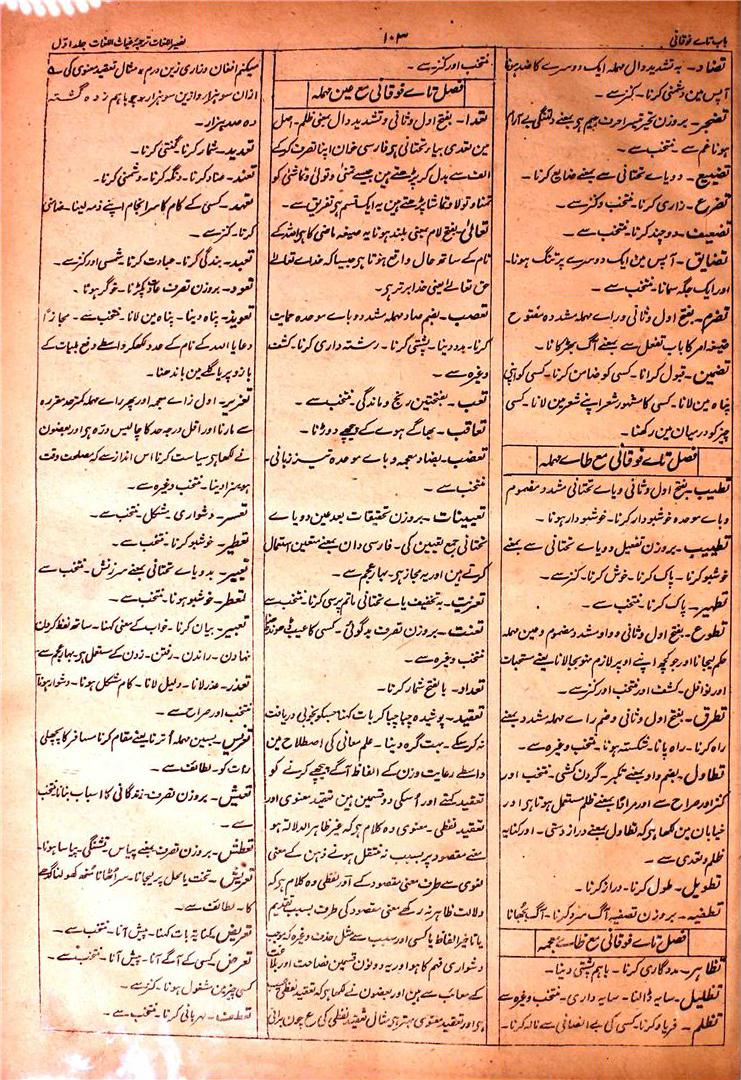 باب تاے فوقانی
۱۰۳
نصیر اللغات ترجمۂ غیاث اللغات جلد اوّل
تضاد۔ بہ تشدید دال مہملہ ایک دوسرے کا ضد ہونا
آپس مین دشمنی کرنا۔ کنز سے۔
تضجر۔ بروزن تحیر تیسرا حرف جیم ہی بمعنے دلتنگی بے آرام
ہونا غم سے۔ منتخب سے۔
تضییع۔ دو یاے تحتانی سے بمعنے ضایع کرنا۔
تضرع۔ زاری کرنا۔ منتخب و کنز سے۔
تضعیف۔ دوچند کرنا۔ منتخب سے۔
تضایق۔ آپس مین ایک دوسرے پر تنگ ہونا۔
اور ایک جگہ سمانا۔ منتخب سے۔
تضرم۔ بفتح اول و ثانی و راے مہملہ مشدد مفتوح
صیغہ امر کا باب تفعل سے بمعنے آگ بھڑکانا۔
تضمین۔ قبول کرانا۔ کسی کو ضامن کرنا۔ کسی کو اپنی
پناہ مین لانا۔ کسی کا مشہور شعر اپنے شعر مین لانا۔ کسی
چیز کو درمیان مین رکھنا۔
فصل تاے فوقانی مع طاے مہملہ
تطیب۔ بفتح اول و ثانی و یاے تحتانی مشدد مضموم
و باے موحدہ خوشبودار کرنا۔ خوشبودار ہونا۔
تطییب۔ بروزن تفعیل دو یاے تحتانی سے بمعنے
خوشبو کرنا۔ پاک کرنا۔ خوش کرنا۔ کنز سے۔
تطہیر۔ پاک کرنا۔ منتخب سے۔
تطوع۔ بفتح اول و ثانی و واو مشدد مضموم و عین مہملہ
حکم بجا لانا اور جو کچھ اپنے اوپر لازم نہو بجا لانا۔ یعنے مستحبات
اور نوافل۔ کشف اور منتخب اور کنز سے۔
تطرق۔ بفتح اول و ثانی و ضم راے مہملہ مشدد بمعنے
راہ کرنا۔ راہ پانا۔ شکستہ ہونا۔ منتخب وغیرہ سے۔
تطاول۔ بضم واو بمعنے تکبر۔ گردن کشی۔ منتخب اور
کنز اور صراح سے اور مراداً بمعنے ظلم مستعمل ہوتا ہی اور
خیابان مین لکھا ہی کہ تطاول بمعنے دراز دستی۔ اور کنایہ
ظلم و تعدی سے۔
تطویل۔ طول کرنا۔ دراز کرنا۔
تطفیہ۔ بروزن تصفیہ آگ سرد کرنا۔ آگ بجھانا
فصل تاے فوقانی مع ظاے معجمہ
تظاہر۔ مددگاری کرنا۔ باہم پشتی دینا۔
تظلیل۔ سایہ ڈالنا۔ سایہ داری۔ منتخب وغیرہ سے
تظلم۔ فریاد کرنا۔ کسی کی بے انصافی سے نالہ کرنا۔
منتخب اور کنز سے۔
فصل تاے فوقانی مع عین مہملہ
تعدا۔ بفتح اول و ثانی و تشدید دال بمعنی ظلم۔ اصل
مین تعدی بیاے تحتانی ہی فارسی خوان اپنا تصرف کر کے
الف سے بدل کر پڑھتے ہین جیسے تمنی و تولی و تماشی کو
تمنا و تولا و تماشا پڑھتے ہین یہ ایک قسم ہی تفریق سے۔
تعالیٰ۔ بفتح لام بمعنی بلند ہونا یہ صیغہ ماضی کا ہی اللہ کے
نام کے ساتھ حال واقع ہوتا ہی جیسا کہ خداے تعالے
حق تعالے یعنی خدا برتر ہی۔
تعصب۔ بضم صاد مہملہ مشدد و باے موحدہ حمایت
کرنا۔ مدد دینا۔ پشتی کرنا۔ رشتہ داری کرنا۔ کشف
وغیرہ سے۔
تعب۔ بفتحتین رنج و ماندگی۔ منتخب سے۔
تعاقب۔ بھاگے ہوے کے پیچھے دوڑنا۔
تعضب۔ بضاد معجمہ و باے موحدہ تیز زبانی۔
منتخب سے۔
تعیینات۔ بروزن تحقیقات بعد عین دو یاے
تحتانی جمع تعیین کی۔ فارسی دان بمعنے متعین استعمال
کرتے ہین اور یہ مجاز ہی۔ بہار عجم سے۔
تعزیت۔ بہ تخفیف یاے تحتانی ماتم پرسی کرنا۔ منتخب سے
تعنت۔ بروزن تصرف بدگوئی۔ کسی کا عیب ڈھونڈھنا
منتخب وغیرہ سے۔
تعداد۔ بالفتح شمار کرنا۔
تعقید۔ پوشیدہ چبا چبا کر بات کہنا جسکو بخوبی دریافت
نہ کر سکے۔ بہت گرہ دینا۔ علم معانی کی اصطلاح مین
واسطے رعایت وزن کے الفاظ آگے پیچھے کرنے کو
تعقید کہتے اور اُسکی دو قسمین ہین تعقید معنوی اور
تعقید لفظی۔ معنوی وہ کلام ہی کہ غیر ظاہر الدلالۃ ہو
معنے مقصود پر بسبب نہ منتقل ہونے ذہن کے معنی
لغوی سے طرف معنی مقصود کے اور لفظی وہ کلام ہی کہ
دلالت ظاہر نہ رکھے معنی مقصود کی طرف بسبب تقدیم
یا تاخیر الفاظ یا کسی اور سبب سے مثل حذف وغیرہ کہ موجب
دشواری فہم کا ہو اور یہ دونون قسمین فصاحت اور بلاغت
کے معائب سے ہین اور بعضون نے لکھا ہی کہ تعقید لفظی
ہی اور تعقید معنوی بہتر ہی مثال تعقید لفظی کی ع چون برانی
میکنم افغان و زاری زین درم۔ مثال تعقید معنوی کی
ازان سو ہزار و ازین سو ہزار باہم زدہ گشتہ
دہ صد ہزار۔
تعدید۔ شمار کرنا۔ گنتی کرنا۔
تعند۔ عناد کرنا۔ دشمنی کرنا۔
تعہد۔ کسی کے کام کا سرانجام اپنے ذمہ لینا۔ ضامنی
کرنا۔ کنز سے۔
تعبد۔ بندگی کرنا۔ عبادت کرنا۔ شمسی اور کنز سے۔
تعود۔ بروزن تصرف عادت پکڑنا۔ خوگر ہونا۔
تعویذ۔ پناہ دینا۔ پناہ مین لانا۔ منتخب سے۔ مجازاً
دعا یا اللہ کے نام کے عدد لکھ کر واسطے دفع بلیات کے
بازو پر یا گلے مین باندھنا۔
تعزیر۔ اول زاے معجمہ اور پھر راے مہملہ کمتر حد مقررہ
سے مارنا اور اقل درجہ حد کا چالیس درہ ہی اور بعضون
نے لکھا ہی سیاست کرنا اس انداز سے کہ مصلحت وقت
ہو سزا دینا۔ منتخب وغیرہ سے۔
تعسر۔ دشواری و مشکل۔ منتخب سے۔
تعطیر۔ خوشبو کرنا۔ منتخب سے۔
تعییر۔ بدو یاے تحتانی بمعنے سرزنش۔ منتخب سے
تعطر۔ خوشبو ہونا۔ منتخب سے۔
تعبیر۔ بیان کرنا۔ خواب کے معنی کہنا۔ ساتھ لفظ کردن
نہادن۔ راندن۔ رفتن۔ زدن کے مستعمل ہی۔ بہار عجم سے
تعذر۔ عذر لانا۔ دلیل لانا۔ کام مشکل ہونا۔ دشوار ہونا
منتخب اور صراح سے۔
تعریس۔ بسین مہملہ اُترنا یعنے مقام کرنا مسافر کا پچھلی
رات کو۔ لطائف سے۔
تعیش۔ بروزن تصرف۔ زندگانی کا اسباب بنانا منتخب
سے۔
تعطش۔ بروزن تصرف بمعنے پیاس۔ تشنگی۔ پیاسا ہونا۔
تعریش۔ تخت یا محل پر بیجانا۔ سر اُٹھانا منھ کھولنا گدھے
کا۔ لطائف سے۔
تعریض۔ کنایہ بات کہنا۔ پیش آنا۔ منتخب سے۔
تعرض۔ کسی کے آگے آنا۔ پیش آنا۔ منتخب سے۔
کسی چیز مین مشغول ہونا۔ کنز سے۔
تعطف۔ مہربانی کرنا۔ منتخب سے۔